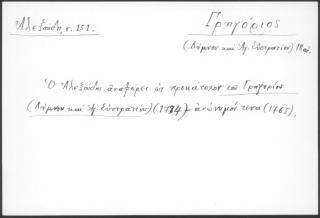 Ἀλεξούδη, σ. 151.
Γρηγόριος
(Λήμνου καὶ Ἁγ. Εὐστρατίου)
Ὁ Ἀλεξούδης ἀναφέρει ὡς προκάτοχον τοῦ Γρηγορίου
(Λήμνου καὶ Ἁγ. Εὐστρατίου) (1774) ἀνώνυμόν τινα (1765).